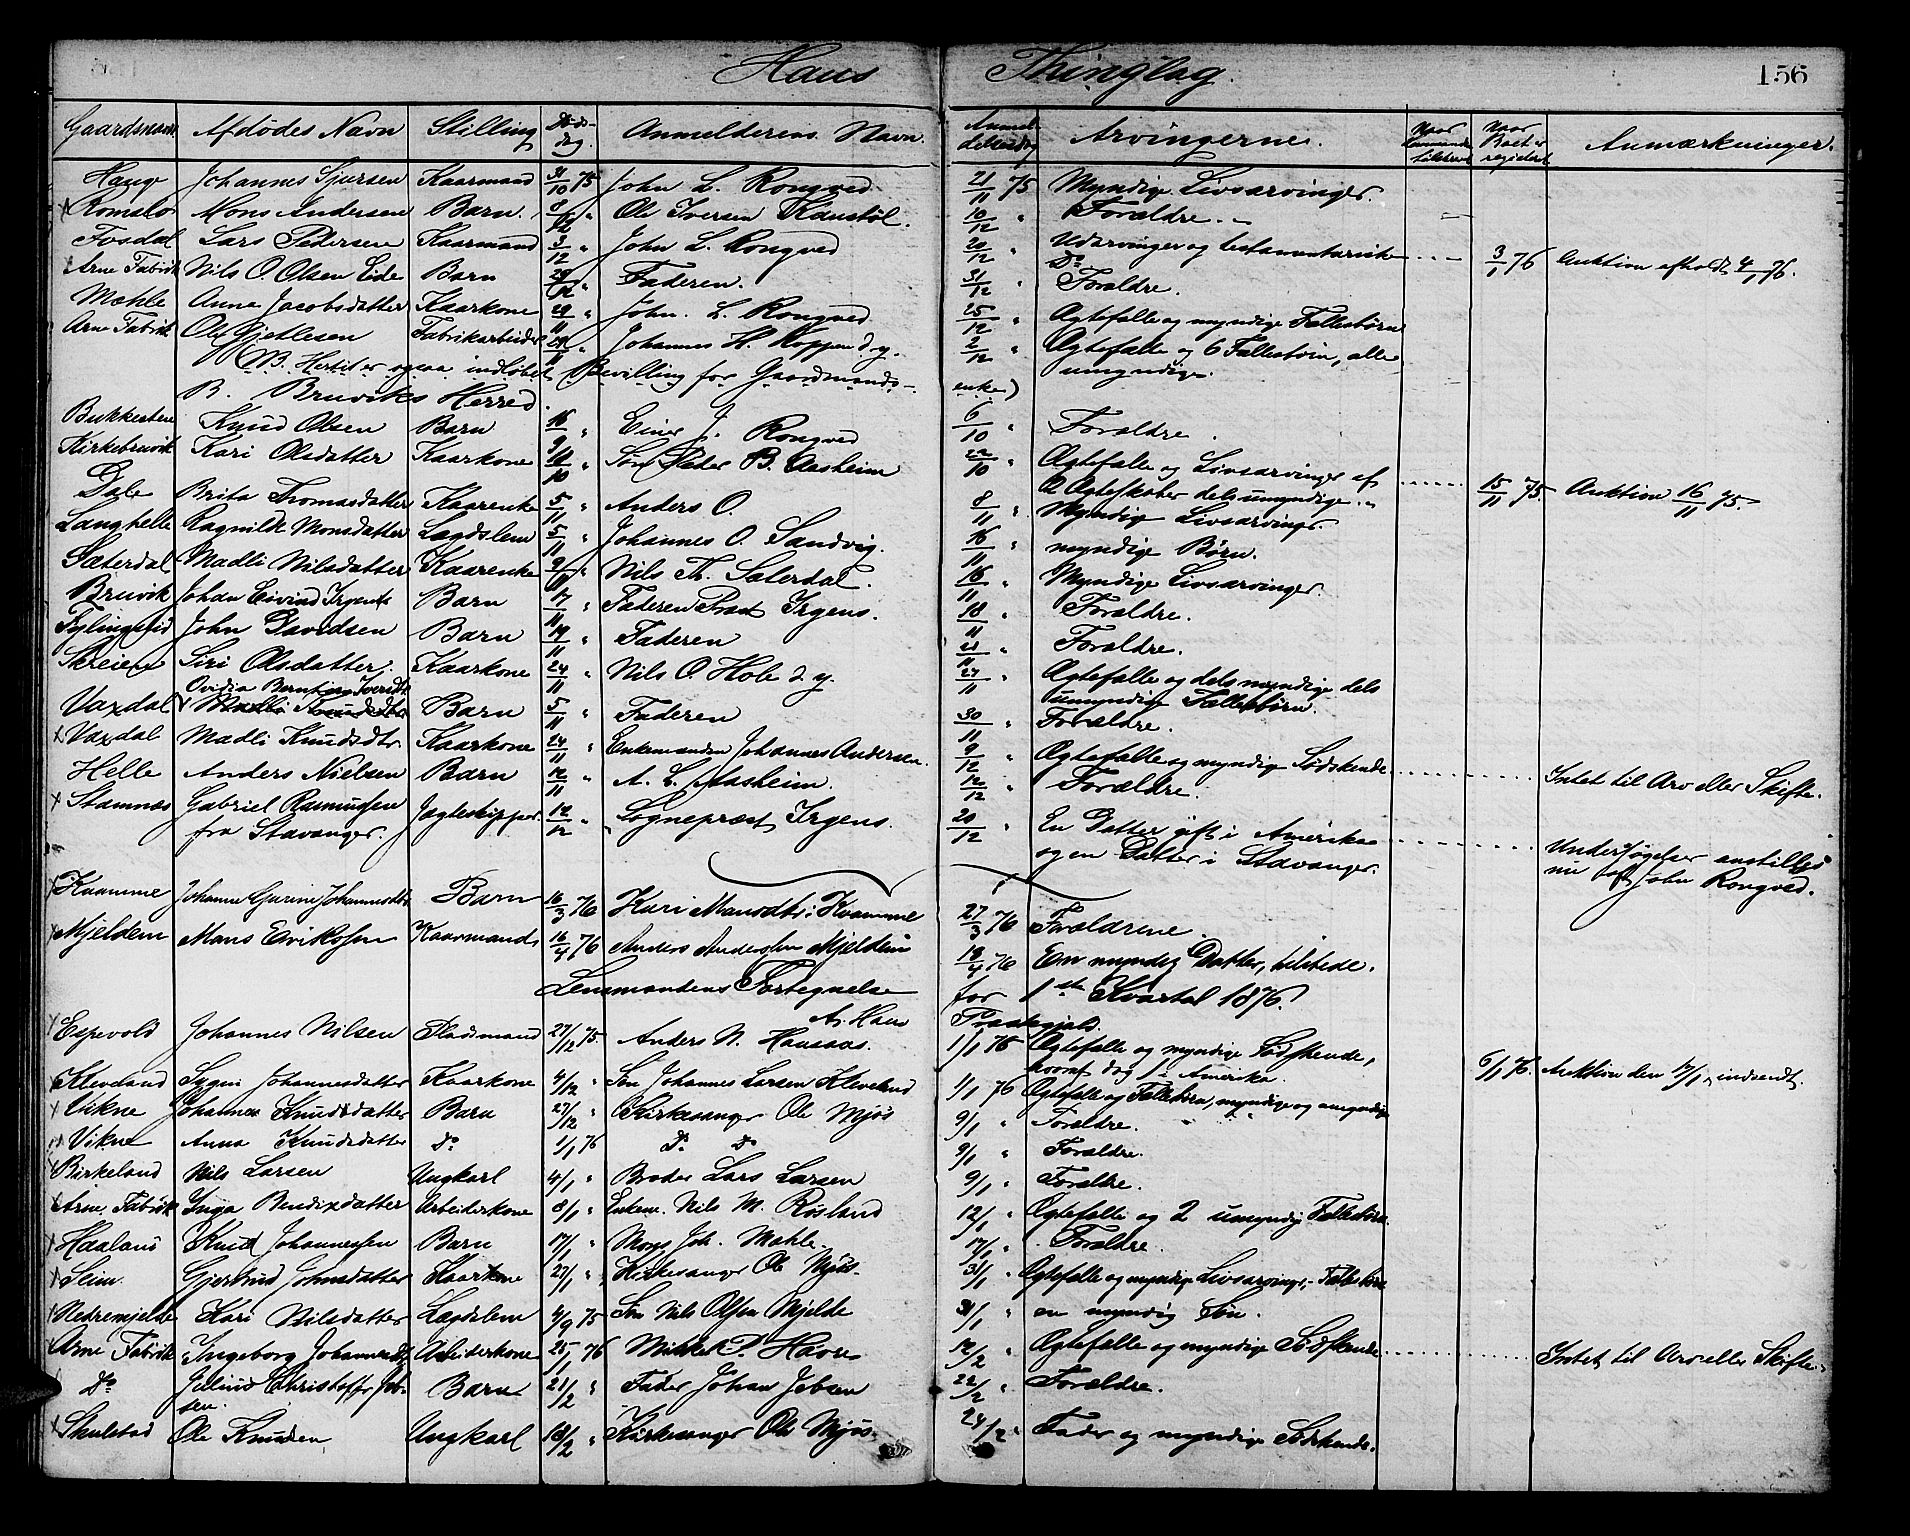 Haus Thinglag. 156
Gaardsnavn Afdødes Navn Stilling Døds-dag. Anmelderens Navn. Anmeldelsesdag Arvingerne. Naar Boet er registeret Anmærkninger.
Haug Johannes Sjursen Kaarmand 31/10 75 John L. Rongved 21/11 75 Myndige Livsarvinger.
Romslo Mons Andersen Barn. 8/12 " Ole Iversen 10/12 " Forældre.
Fosdal Lars Pedersen Kaarmand 3/12 " John L. Rongved 20/12 " Udarvinger og testamentariske 3/1 76 Auktion afholdt 4/1 76.
Do
Arne Fabrik Nils O. Olsen Eide Barn 29/12 " Faderen. 31/12 " Forældre.
Mæhle Anna Jacobsdatter Kaarkone 29/11 " John. L. Rongved 25/12 " Ægtefælle og myndige Fællesbørn
Arne Fabrik Ole Gjetlesen Fabrikarbeider 28/11 " Johannes H. Koppen d. y. 2/12 " Ægtefælle og 6 Fællesbørn, alle
umyndige.
NB. Hertil er ogsaa indløbet Bevilling for Gaardmands-enke)
B. Bruviks Herred.
Bukkesten Knud Olsen Barn 16/9 " Einer J. Rongved 6/10 " Forældre.
Kirkebruvik Kari Olsdatter Kaarkone 10/10 " Søn Peder B. Aasheim 22/10 " Ægtefælle og Livsarvinger af 15/11 75 Auktion 16/11 75.
2 Ægteskaber dels umyndige.
Dale Brita Thomasdatter Kaarenke 5/11 " Anders O. 8/11 " Myndige Livsarvinger.
Langhelle Ragnilde Monsdatter Lægdslem 5/11 " Johannes O. Sandvig. 16/11 " myndige Børn.
Sæterdal Madli Nilsdatter Kaarenke 9/11 " Nils Th. Sæterdal. 16/11 " Myndige Livsarvinger.
Bruvik Johan Eivind Irgens Barn 17/11 " Faderen Præst Irgens. 18/11 " Forældre.
Fylingslid John Davidsen Barn 19/11 " Faderen 21/11 " Forældre.
Skreien Siri Olsdatter. Kaarkone 24/11 " Nils O. Hole d. y. 27/11 " Ægtefælle og dels myndige dels
umyndige Fællesbørn.
Vaxdal Ovidia Berntine Iversdtr Barn 5/11 " Faderen 30/11 " Forældre.
Vaxdal Madli Knudsdtr Kaarkone 24/11 " Enkemanden Johannes Andersen. 9/12 " Ægtefælle og myndig Sødskende Intet til Arv eller Skifte.
Helle Anders Nielsen Barn 12/11 " A. L. Aasheim. 12/12 " Forældre.
Stamnæs Gabriel Rasmussen Jagteskipper 12/12 " Sognepræst Irgens. 20/12 " En Datter gift i Amerika Undersøgelser anstilles
fra Stavanger. og en Datter i Stavanger. nu af John Rongved.
Kvamme Johanne Gurine Johannesdtr Barn 16/3 76 Kari Mansdtr. Kvamme 27/3 76 Forældrene.
Mjeldem Mans Erikssen Kaarmand 16/4 76 Anders Anderssen Mjeldem 18/4 76 En myndig Datter, tilstede.
Lensmandens Fortegnelse for 1ste Kvartal 1876.
A. Haus Præstegjeld.
Espevold Johannes Nilsen Pladsmand 27/12 75 Anders N. Hausaas. 1/1 76 Ægtefælle og myndige Sødskende,
hvoraf dog 1 i Amerika.
Kleveland Sygni Johannesdatter Kaarkone 4/12 " Søn Johannes Larsen Kleveland 1/1 76 Ægtefælle og Fællesbørn, myndige og umyndige 6/1 76. Auktion den 17/1, indsendt.
Vikne Johannes Knudsdatter Barn 27/12 " Kirkesanger Ole Mjøs 9/1 " Forældre.
Vikne Anna Knudsdatter Do 1/1 76 Do Do 9/1 " Forældre.
Birkeland Nils Larsen Ungkarl 4/1 " Broder Lars Larsen 9/1 " Forældre.
Arne Fabrik Inga Bendixdatter Arbeiderkone 8/1 " Enkem. Nils M. Røsland 12/1 " Ægtefælle og 2 umyndig Fællesbørn.
Haaland Knud Johannessen Barn 17/1 " Mons Joh. Mæhle. 17/1 " Forældre.
Seim. Gjertrud Johnsdatter Kaarkone 27/1 " Kirkesanger Ole Mjøs. 31/1 " Ægtefælle og myndige Livsarvinger, Fællesbørn
Nedremjelde Kari Nilsdatter Lægdslem 4/9 75 Søn Nils Olsen Mjelde 31/1 " en myndig Søn.
Arne Fabrik Ingeborg Johannesdtr Arbeiderkone 25/1 76 Mikkel P. Havre 12/2 " Ægtefælle og myndige Sødskende Intet til Arv eller Skifte.
Do Christoffer Jebsen. Barn 21/2 " Fader Johan Jebsen 22/2 " Forældre.
Skulstad Ole Knudsen Ungkarl 18/2 " Kirkesanger Ole Mjøs. 24/2 " Fader og myndige Sødskende.